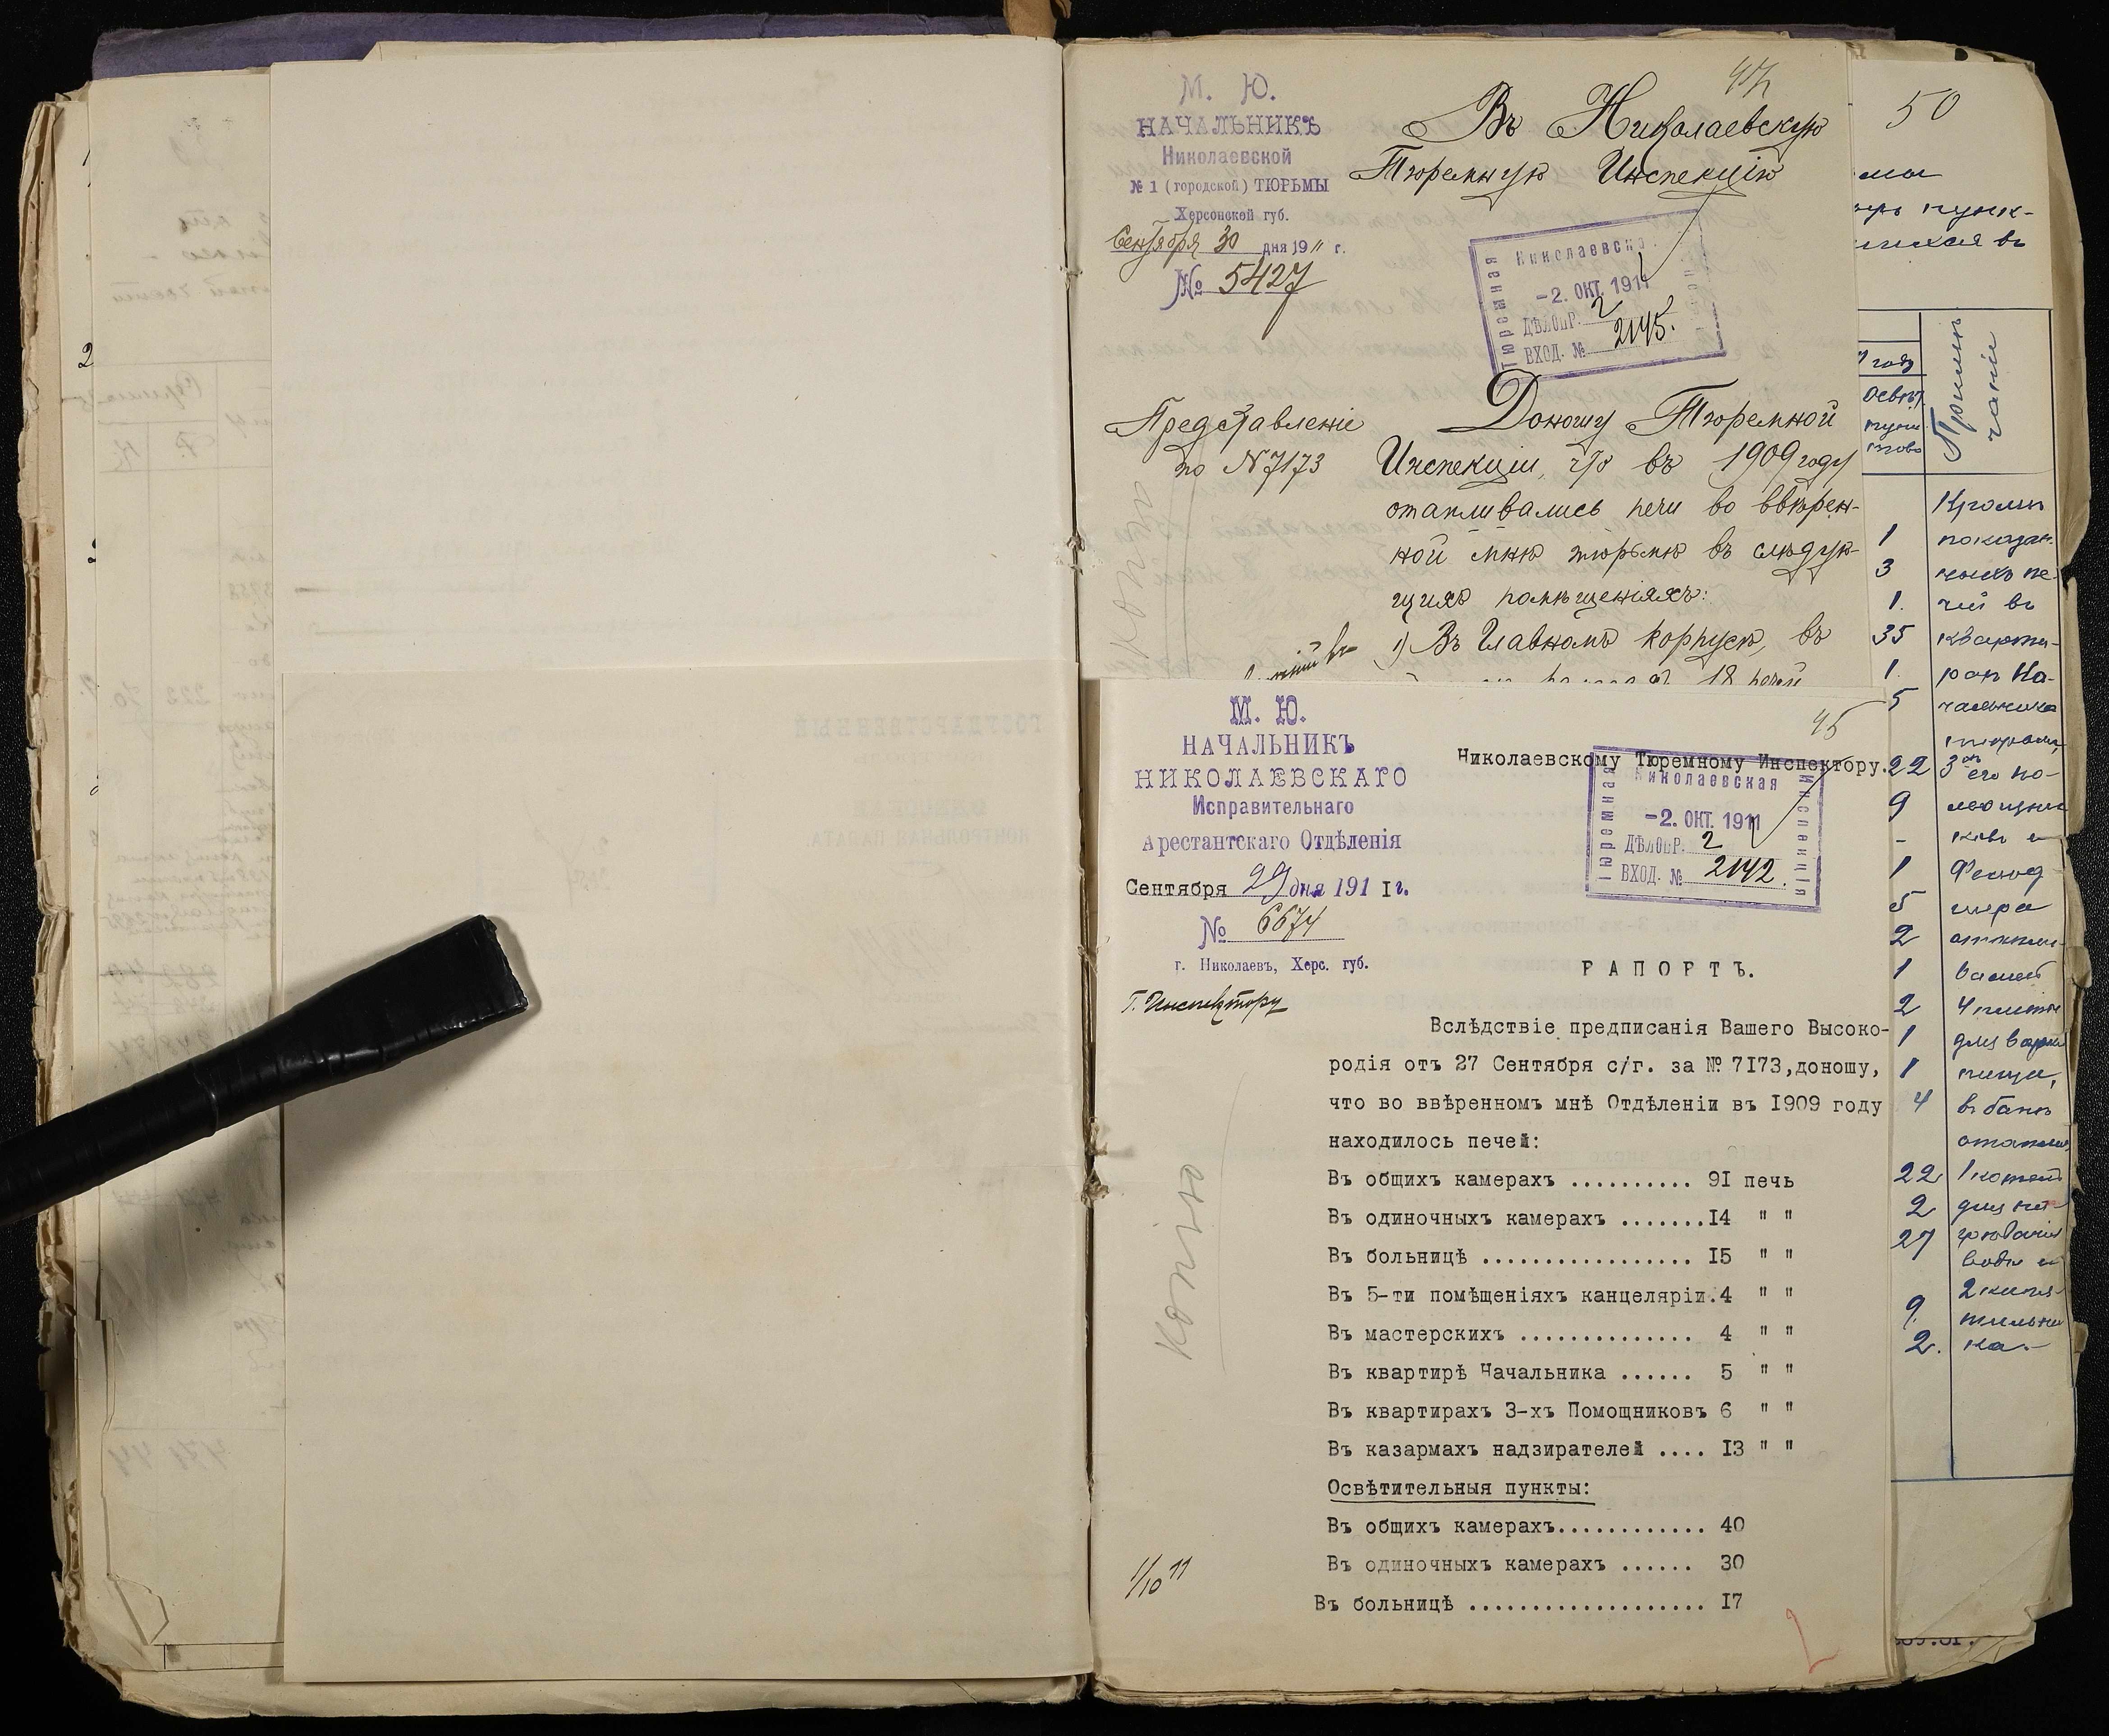 44
М. Ю.
НАЧАЛЬНИКЪ
Николаевской
№ 1 (городской) ТЮРЬМЫ
Херсонской губ.
Сентября 30 дня 1911 г.
№ 5427
Въ Николаевскую
Тюремную Инспекцію
Николаевск
Тюремная
-2. ОКТ. 1911
ДѢЛОПР. 2
ВХОД. № 2145.
Представленіе
по N 7173
Доношу Тюремной
Инспекціи, что въ 1909 году
отапливались печи во ввѣрен-
ной мнѣ тюрьмѣ въ слѣдую-
щихъ помѣщеніяхъ:
1) Въ Главномъ корпусѣ, въ
18 печей
копію
45
М. Ю.
НАЧАЛЬНИКЪ
НИКОЛАЕВСКАГО
Исправительнаго
Арестантскаго Отдѣленія
Сентября 29 дня 1911 г.
№ 6674
г. Николаевъ, Херс. губ.
Г. Инспектору
Николаевскому Тюремному Инспектору.
Николаевская
Тюремная
Инспекція
-2. ОКТ. 1911
ДѢЛОПР. 2
ВХОД. № 2142.
РАПОРТЪ.
Вслѣдствіе предписанія Вашего Высоко-
родія отъ 27 Сентября с/г. за № 7173, доношу,
что во ввѣренномъ мнѣ Отдѣленіи въ 1909 году
находилось печей:
Въ общихъ камерахъ .......... 91 печь
Въ одиночныхъ камерахъ .......14 " "
Въ больницѣ ................. 15 " "
Въ 5-ти помѣщеніяхъ канцеляріи.4 " "
Въ мастерскихъ .............. 4 " "
Въ квартирѣ Начальника ...... 5 " "
Въ квартирахъ 3-хъ Помощниковъ 6 " "
Въ казармахъ надзирателей .... 13 " "
Освѣтительныя пункты:
Въ общихъ камерахъ............ 40
Въ одиночныхъ камерахъ ...... 30
Въ больницѣ ................... 17
копію
1/10 11
50
пунк-
въ
году
Освѣт.
пунк
товъ
Примѣ
чаніе
Кромѣ
1 показан-
3 ныхъ пе-
1. чей въ
35 кварти-
1. рахъ На-
5 чальника
тюрьмы,
22 3хъ его по-
9 мощни
- ковъ и
1 Фельд
5 шера
2 отапли-
1 вались
2 4 плиты
1 для варки
1 пищи,
4 въ банѣ
отаплив.
22 1 котелъ
2 для на-
27 грѣванія
воды и
2 кипя-
9. тильни
2. ка.-